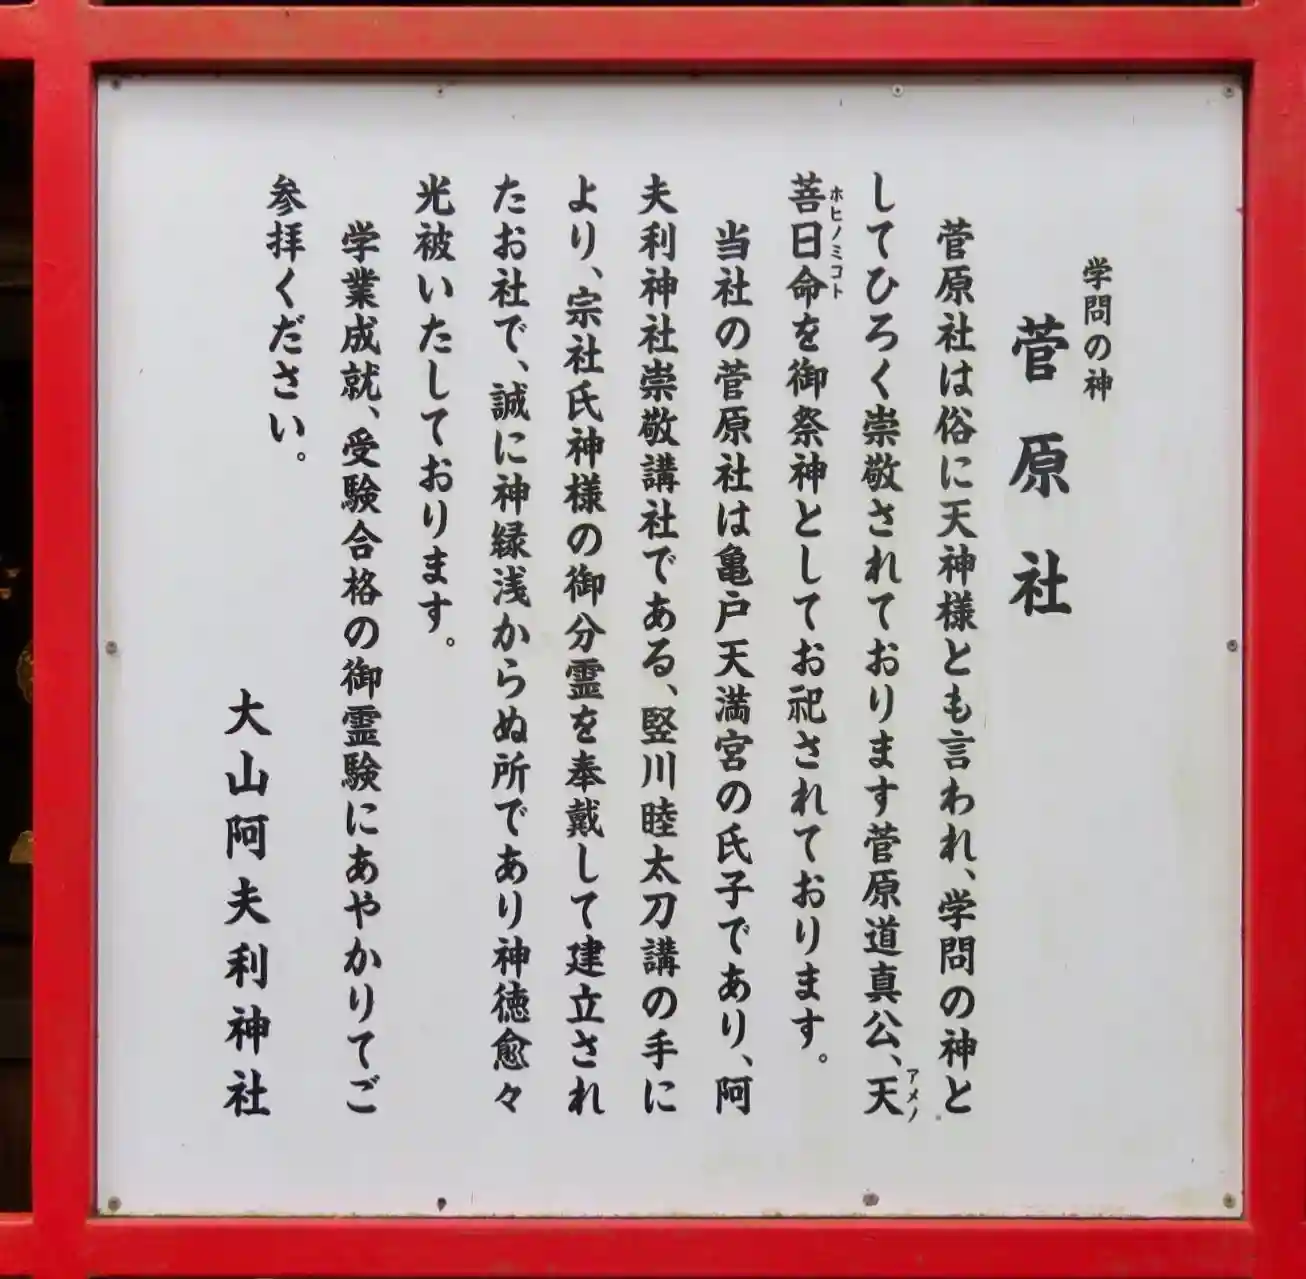 学問の神
菅原社
菅原社は俗に天神様とも言われ、学問の神と
してひろく崇敬されております菅原道真公、天
アメノ
菩日命を御祭神としてお祀されております。
ホヒノミコト
当社の菅原社は亀戸天満宮の氏子であり、阿
夫利神社崇敬講社である、竪川睦太刀講の手に
より、宗社氏神様の御分霊を奉戴して建立され
たお社で、誠に神縁浅からぬ所であり神徳愈々
光被いたしております。
学業成就、受験合格の御霊験にあやかりてご
参拝ください。
大山阿夫利神社